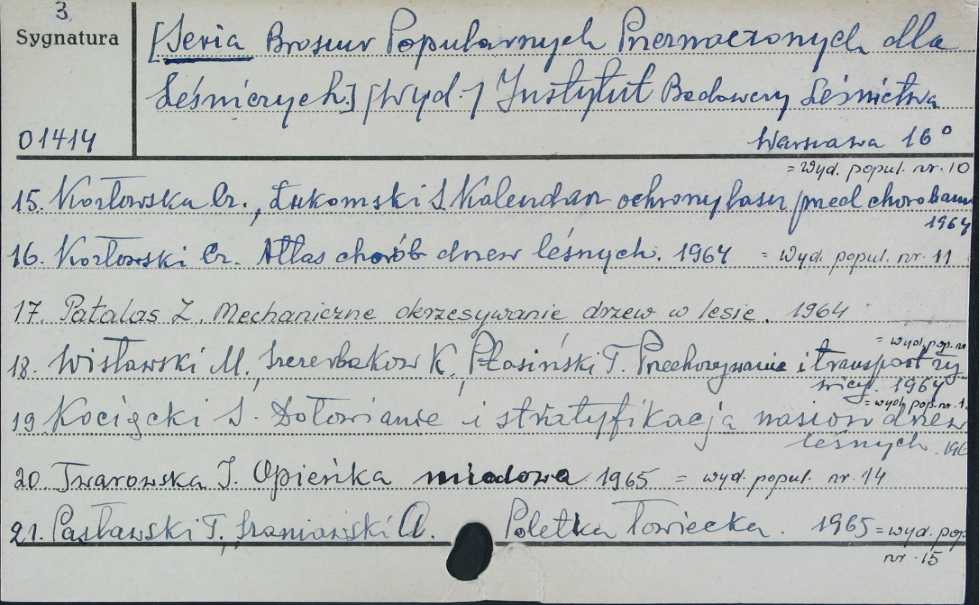 3
Sygnatura
[Seria Broszur Popularnych Przeznaczonych dla
Leśniczych.] [Wyd.] Instytut Badawczy Leśnictwa
01414
Warszawa 16°
= Wyd. popul. nr. 10
15. Kozłowska Cz., Łukomski S. Kalendarz ochrony lasu przed chorobami
1964
16. Kozłowski Cz. Atlas chorób drzew leśnych. 1964 = Wyd. popul. nr. 11
17. Patalas Z. Mechaniczne okrzesywanie drzew w lesie. 1964
= wyd. pop. nr
18. Wisławski M., Szczerbakow K., Płasiński T. Przechowywanie i transport ży
wicy. 1964
= wyd. pop. nr. 1
19 Kocięcki S. Dołowanie i stratyfikacja nasion drzew
leśnych. 196
20. Twarowska I. Opieńka miodowa 1965 = wyd. popul. nr 14
21. Pasławski T., Szaniawski A. Poletka łowiecka. 1965 = wyd. pop.
nr. 15